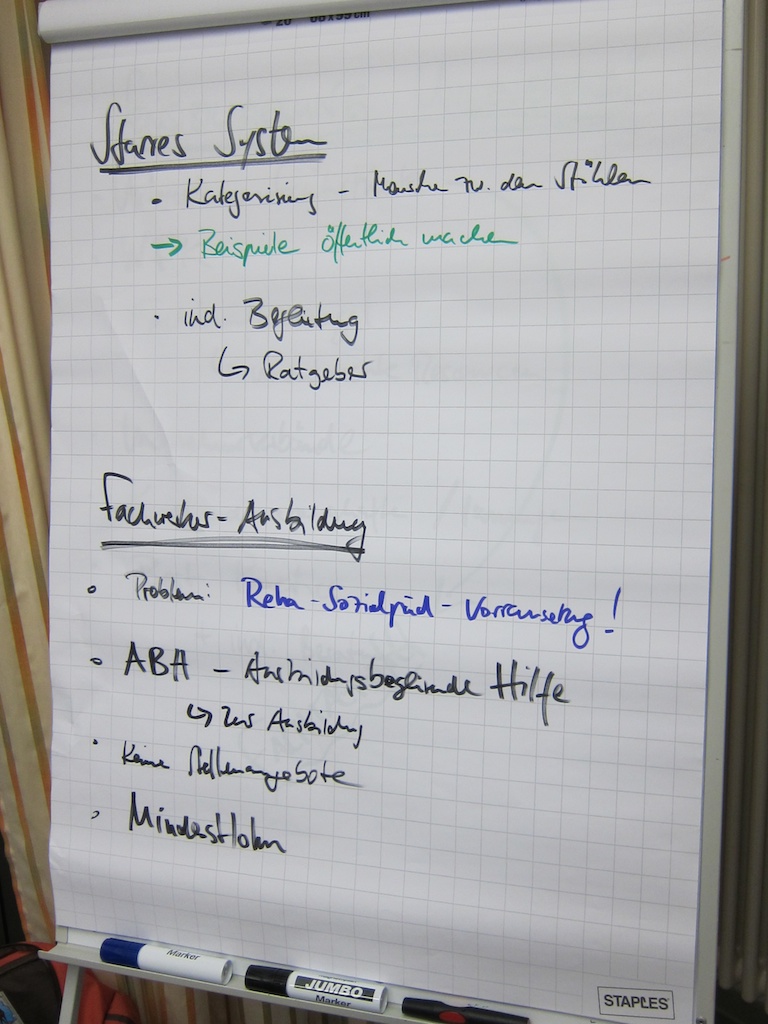 20 68x99cm
Starres System
• Kategorisierung - Mensche zw. den Stühlen
→ Beispiele öffentlich machen
• ind. Begleitung
↳ Ratgeber
Fachwerker-Ausbildung
• Problem: Reha-Sozialpäd-Vorraussetzg!
• ABH - Ausbildungsbegleitende Hilfe
↳ zur Ausbildung
• Keine Stellenangebote
• Mindestlohn
Marker
JUMBO
Marker
STAPLES